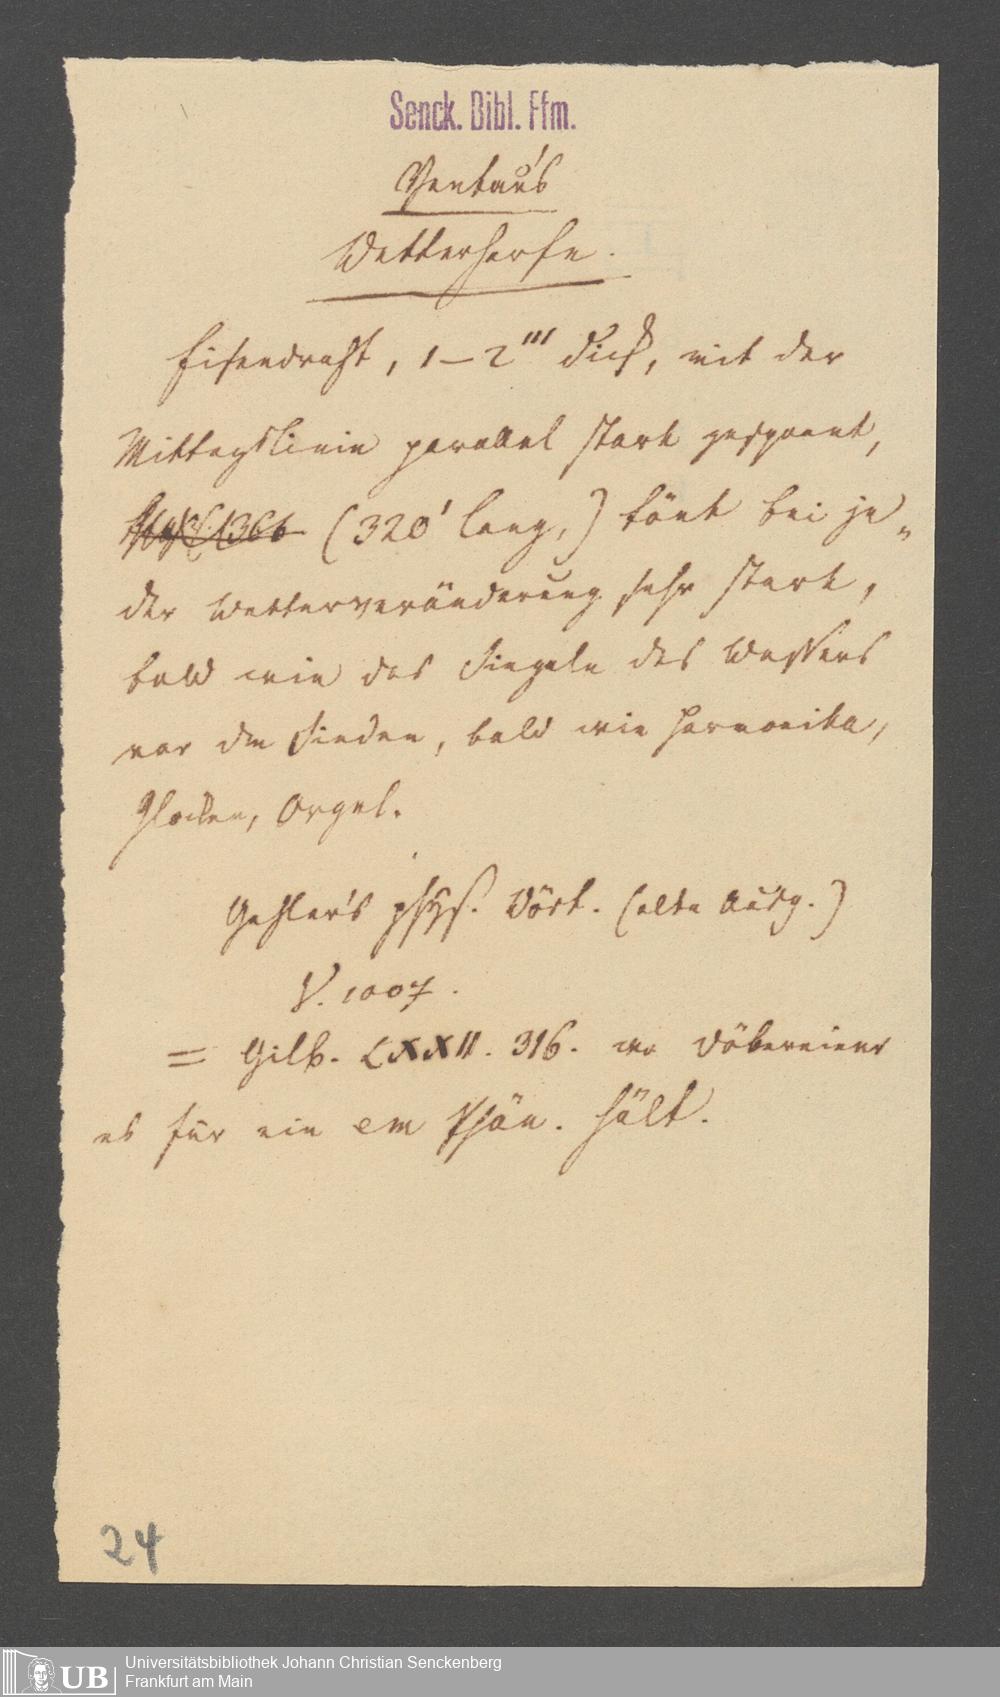 Senck. Bibl. Ffm.
Ventan's
Wetterharfe.
Eisendraht, 1–2''' dick, mit der
Mittagslinie parallel stark gespannt,
(320' lang,) tönt bei je-
der Wetterveränderung sehr stark,
bald wie das Singeln des Wassers
vor dem Sieden, bald wie Harmonika,
Glocken, Orgel.
Gehler's phys. Wört. (alte Ausg.)
V. 1007.
= Gilb. LXXII. 316. wo Döbereiner
es für ein em Phän. hält.
24
UB
Universitätsbibliothek Johann Christian Senckenberg
Frankfurt am Main